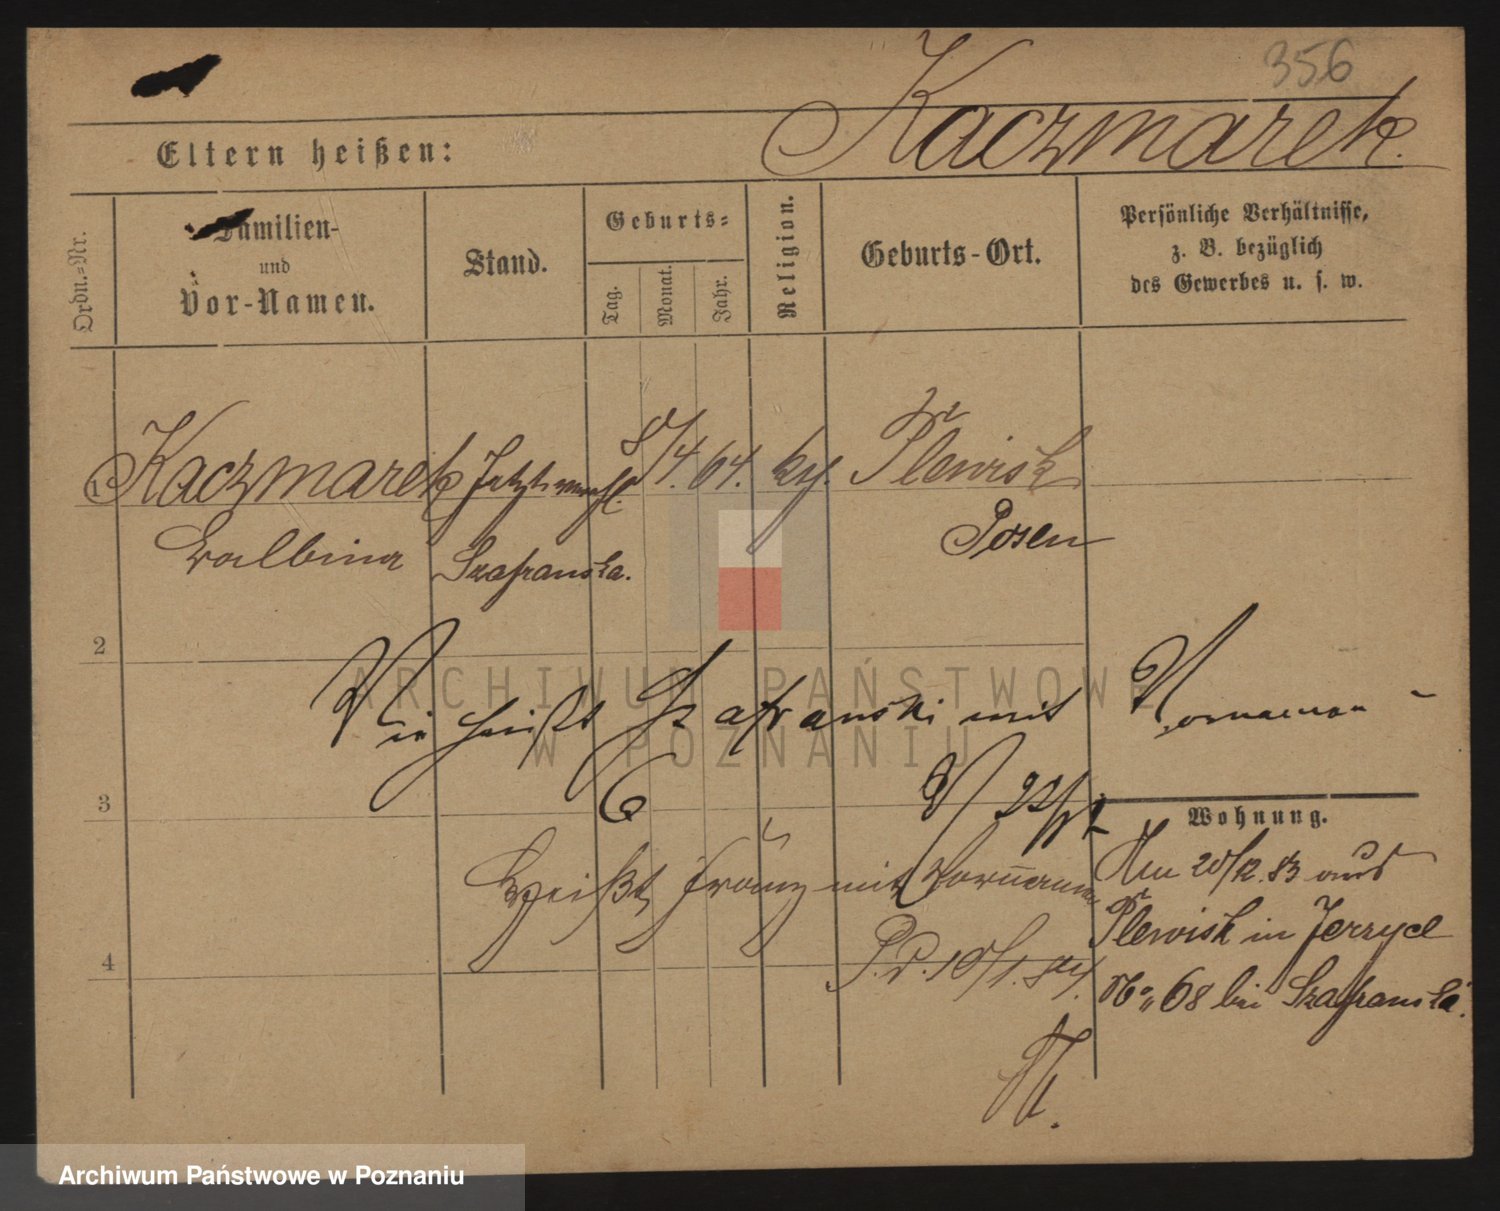 356
Kaczmarek.
Eltern heißen:
Ordn.-Nr.
Familien-
und
Vor-Namen.
Stand.
Geburts-
Tag.
Monat.
Jahr.
Religion.
Geburts-Ort.
Persönliche Verhältnisse,
z. B. bezüglich
des Gewerbes u. s. w.
1 Kaczmarek Jetzt verehl. 8/4. 64. kth. Plewisk
Balbina Szafranska. Posen
2
Wie heißt Szafranski mit Vornamen
ARCHIWUM PAŃSTWOWE
W POZNANIU
3
Wohnung.
Heißt Franz mit Vornamen
P. d. 10/1. 84.
Am 20/12. 83 aus
Plewisk in Jerzyce
No 68 bei Szafranska.
4
Archiwum Państwowe w Poznaniu